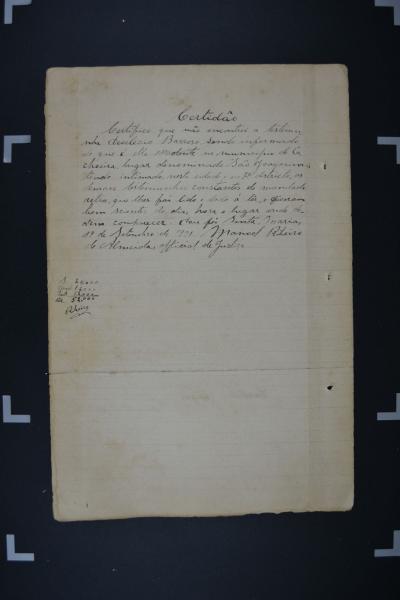 Certidão
Certifico que não encontrei a testemu
nha Aeulecio Barros, sendo informado
de que é elle residente no municipio de Ca
choeira, lugar denominado São Joaquim,
tendo intimado, nesta cidade e no 3º districto, as
demais testemunhas constantes do mandado
retro, que lhes foi lido e dado á ler, e ficaram
bem scientes do dia, hora e lugar onde de
viam comparecer. Dou fé. Santa Maria,
de Setembro de 1921. Manoel Ribeiro
de Almeida, official de Justiça